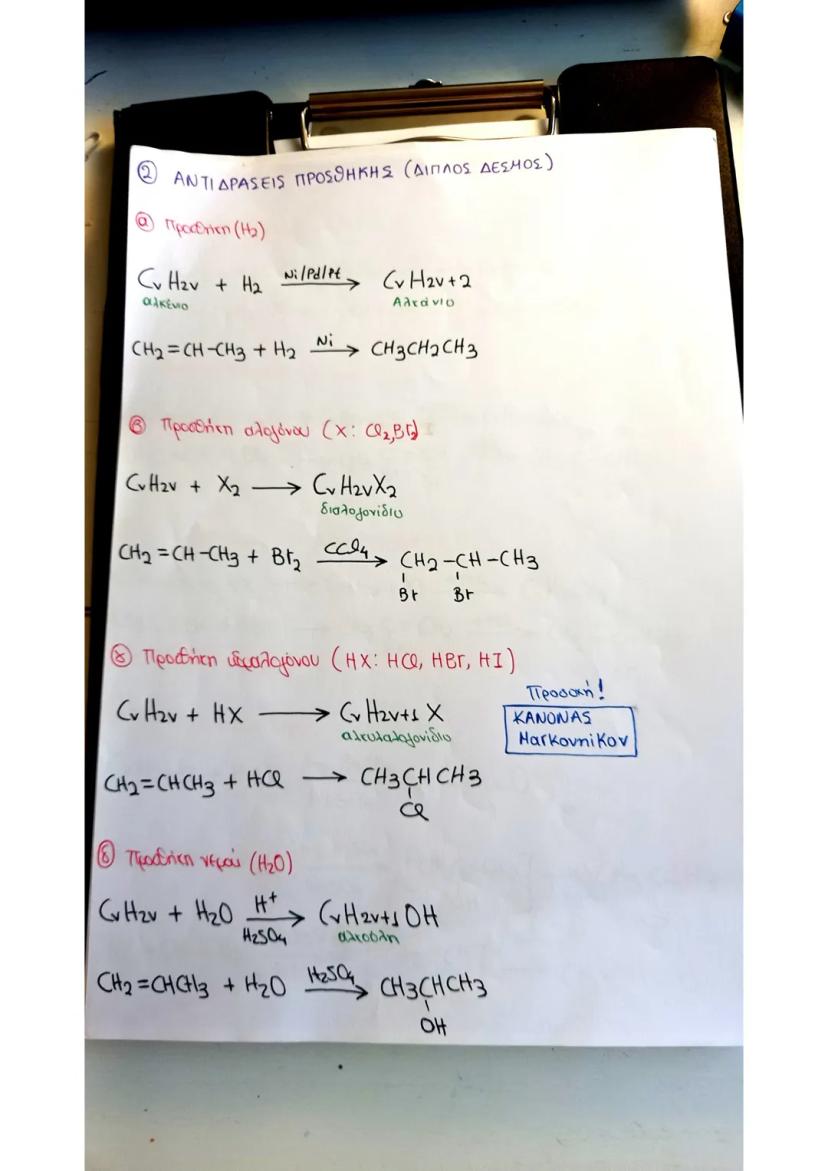 ② ΑΝΤΙΔΡΑΣΕΙΣ ΠΡΟΣΘΗΚΗΣ (ΔΙΠΛΟΣ ΔΕΣΜΟΣ)
ⓐ Προσθήκη (H₂)
CᵥH₂ᵥ + H₂ Ni/Pd/Pt → CᵥH₂ᵥ+2
αλκένιο Αλκάνιο
CH₂=CH-CH₃ + H₂ Ni → CH3CH2CH3
ⓑ Προσθήκη αλογόνου (X: Cl₂, Br₂)
CᵥH₂ᵥ + X₂ → CᵥH₂ᵥX₂
διαλογονίδιο
CH₂=CH-CH₃ + Br₂ CCl₄ → CH2-CH-CH3
Br Br
γ Προσθήκη υδραλογόνου (HX: HCl, HBr, HI)
Προσοχή!
CᵥH₂ᵥ + HX → CᵥH₂ᵥ+1 X
αλκυλαλογονίδιο
ΚΑΝΟΝΑΣ
Markovnikov
CH₂=CHCH₃ + HCl → CH3CHCH3
Cl
δ Προσθήκη νερού (H₂O)
CᵥH₂ᵥ + H₂O H⁺ → CᵥH₂ᵥ+1 OH
H₂SO₄ αλκοόλη
CH₂=CHCH₃ + H₂O H₂SO₄ → CH3CHCH3
OH